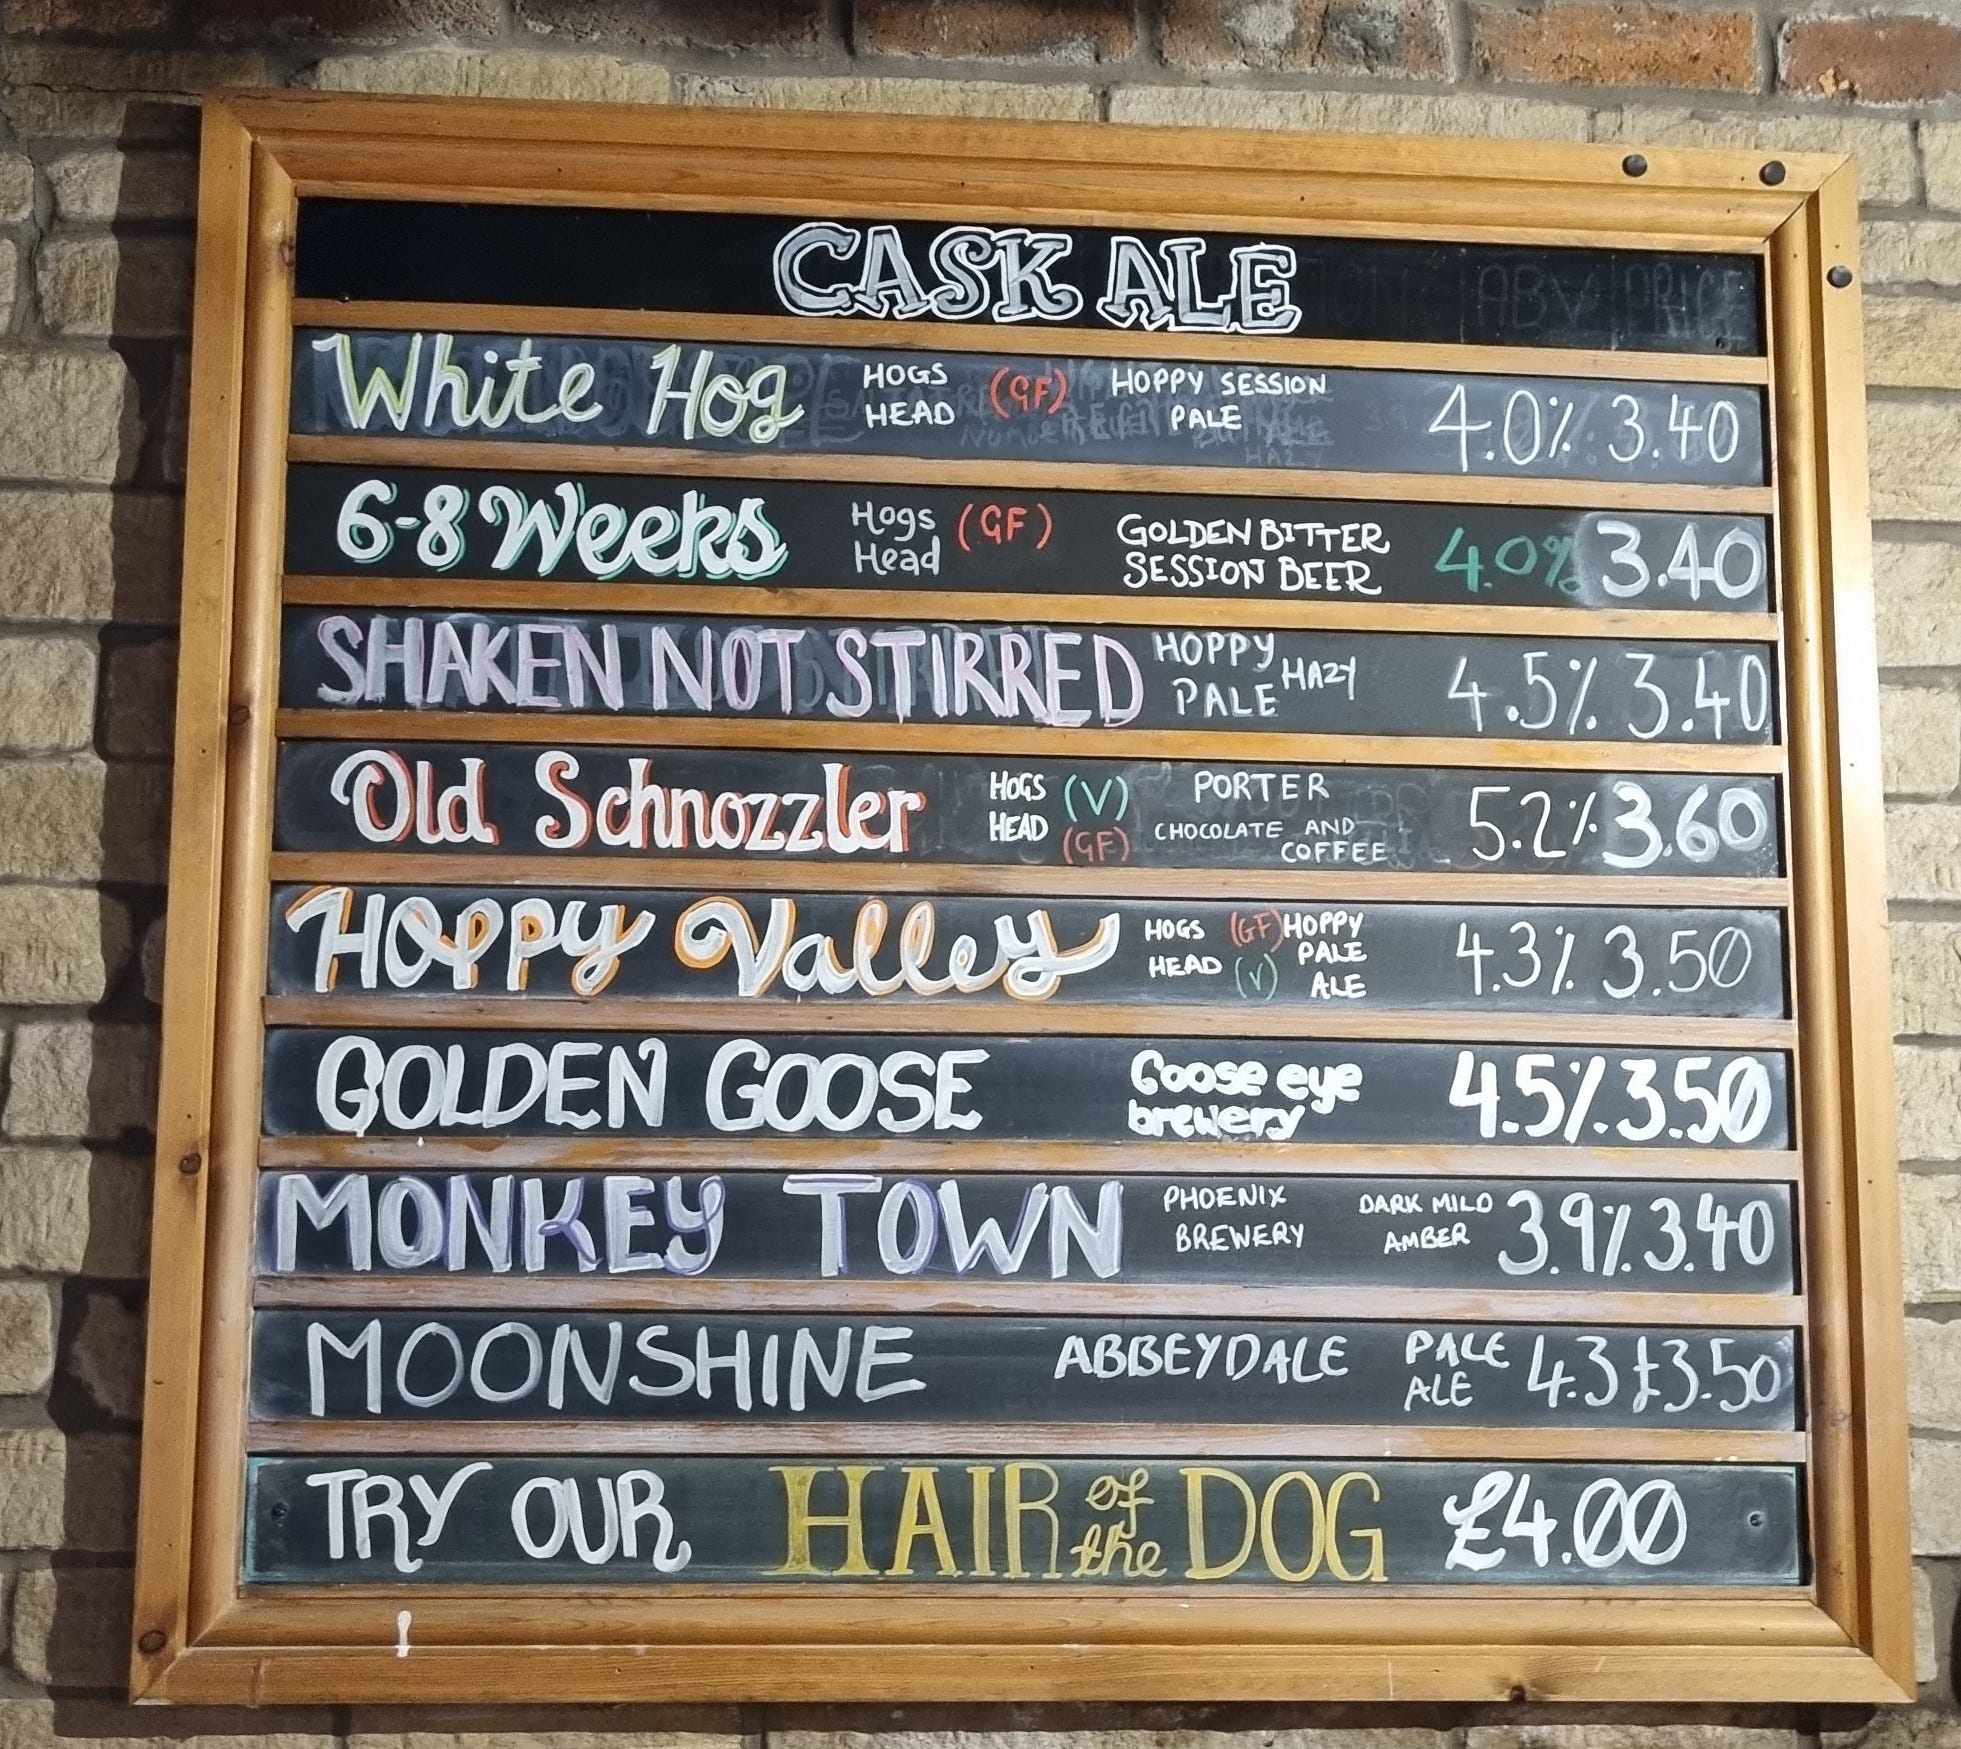 CASK ALE ABV PRICE
White Hog HOGS HEAD (GF) HOPPY SESSION PALE 4.0% 3.40
6-8 Weeks Hogs Head (GF) GOLDEN BITTER SESSION BEER 4.0% 3.40
SHAKEN NOT STIRRED HOPPY PALE HAZY 4.5% 3.40
Old Schnozzler HOGS HEAD (V) (GF) PORTER CHOCOLATE AND COFFEE 5.2% 3.60
Hoppy Valley HOGS HEAD (GF) (V) HOPPY PALE ALE 4.3% 3.50
GOLDEN GOOSE Goose eye brewery 4.5% 3.50
MONKEY TOWN PHOENIX BREWERY DARK MILD AMBER 3.9% 3.40
MOONSHINE ABBEYDALE PALE ALE 4.3 £3.50
TRY OUR HAIR of the DOG £4.00